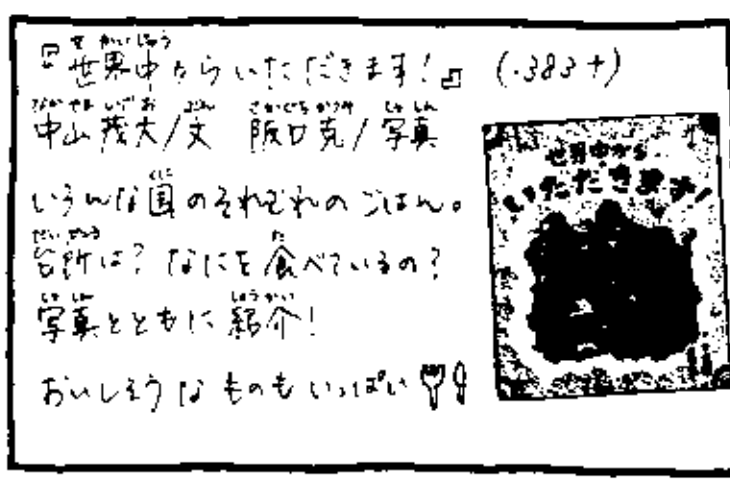 『世界中からいただきます!』 (383ナ)
中山茂大/文 阪口克/写真
いろんな国のそれぞれのごはん。
台所は? なにを食べているの?
写真とともに紹介!
おいしそうなものもいっぱい
世界中から
いただきます!